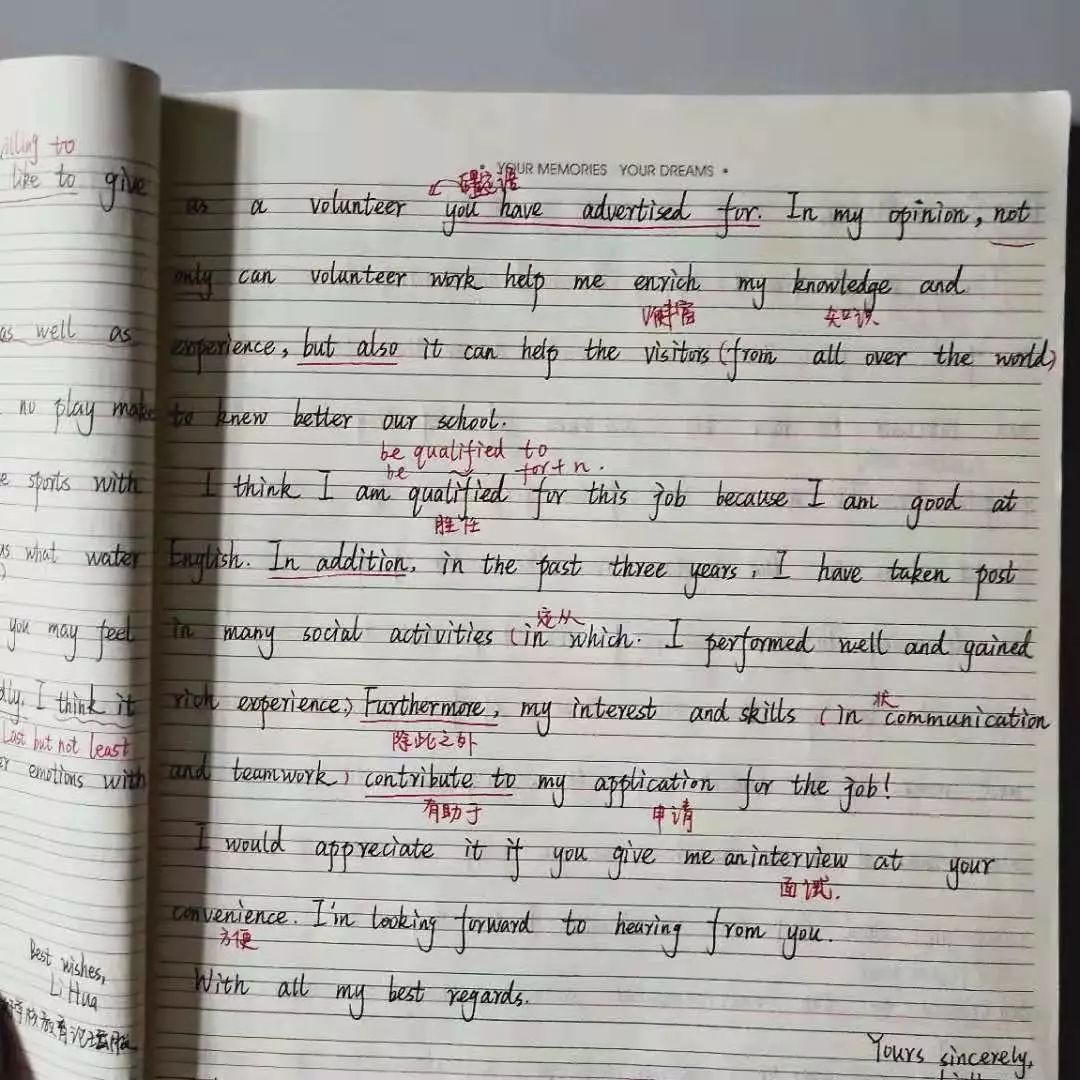 lling to
like to give
as well as
no play make
e sports with
as what water
you may feel
dly, I think it
Last but not least
er emotions with
Best wishes,
Li Hua
• YOUR MEMORIES YOUR DREAMS •
as a volunteer you have advertised for. In my opinion, not
only can volunteer work help me enrich my knowledge and
知识
experience, but also it can help the visitors (from all over the world)
to knew better our school.
be qualified to
be for+n.
I think I am qualified for this job because I am good at
胜任
English. In addition, in the past three years, I have taken post
定从
in many social activities (in which. I performed well and gained
状
rich experience) Furthermore, my interest and skills (in communication
除此之外
and teamwork) contribute to my application for the job!
有助于 申请
I would appreciate it if you give me an interview at your
面试.
convenience. I'm looking forward to hearing from you.
方便
With all my best regards.
Yours sincerely,